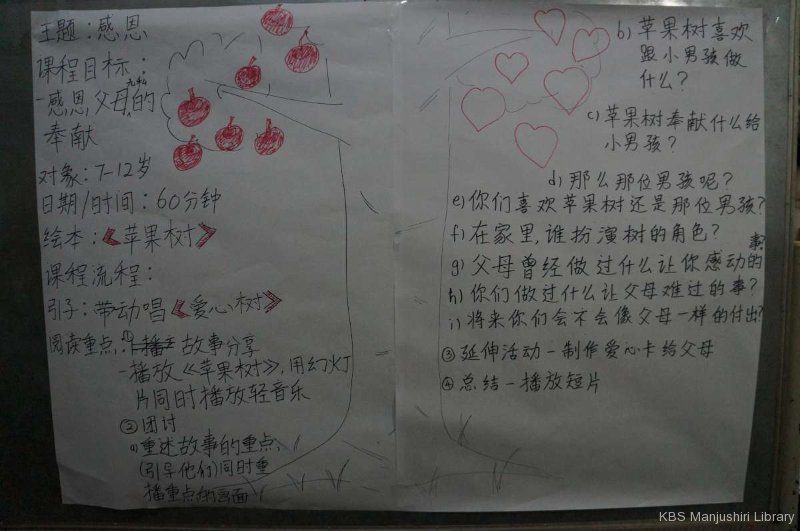 主题：感恩
课程目标：
-感恩父母的
奉献
对象：7-12岁
日期/时间：60分钟
绘本：《苹果树》
课程流程：
引子：带动唱《爱心树》
阅读重点：① 故事分享
-播放《苹果树》，用幻灯
片同时播放轻音乐
② 团讨
a) 重述故事的重点，
(引导他们)同时重
播重点的画面
b) 苹果树喜欢
跟小男孩做
什么？
c) 苹果树奉献什么给
小男孩？
d) 那么那位男孩呢？
e) 你们喜欢苹果树还是那位男孩？
f) 在家里，谁扮演树的角色？
g) 父母曾经做过什么让你感动的事？
h) 你们做过什么让父母难过的事？
i) 将来你们会不会像父母一样的付出？
③ 延伸活动-制作爱心卡给父母
④ 总结-播放短片
KBS Manjushiri Library